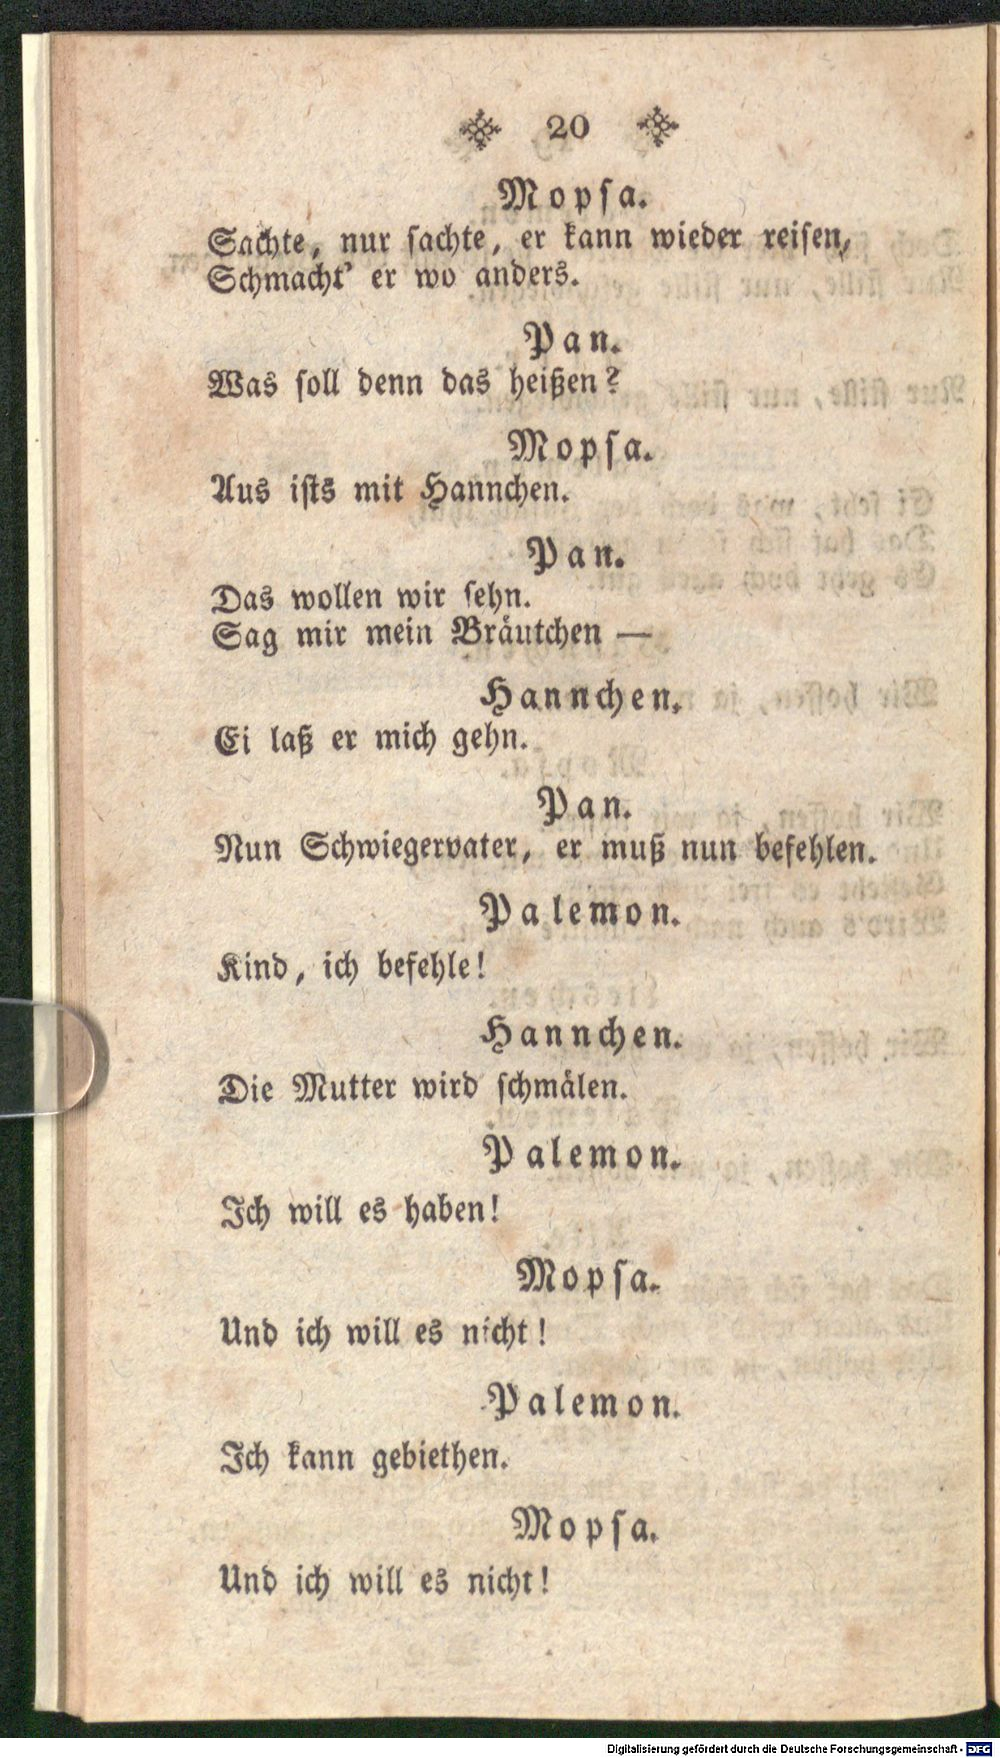 20
Mopsa.
Sachte, nur sachte, er kann wieder reisen,
Schmacht' er wo anders.
Pan.
Was soll denn das heißen?
Mopsa.
Aus ists mit Hannchen.
Pan.
Das wollen wir sehn.
Sag mir mein Bräutchen —
Hannchen.
Ei laß er mich gehn.
Pan.
Nun Schwiegervater, er muß nun befehlen.
Palemon.
Kind, ich befehle!
Hannchen.
Die Mutter wird schmälen.
Palemon.
Ich will es haben!
Mopsa.
Und ich will es nicht!
Palemon.
Ich kann gebiethen.
Mopsa.
Und ich will es nicht!
Digitalisierung gefördert durch die Deutsche Forschungsgemeinschaft - DFG